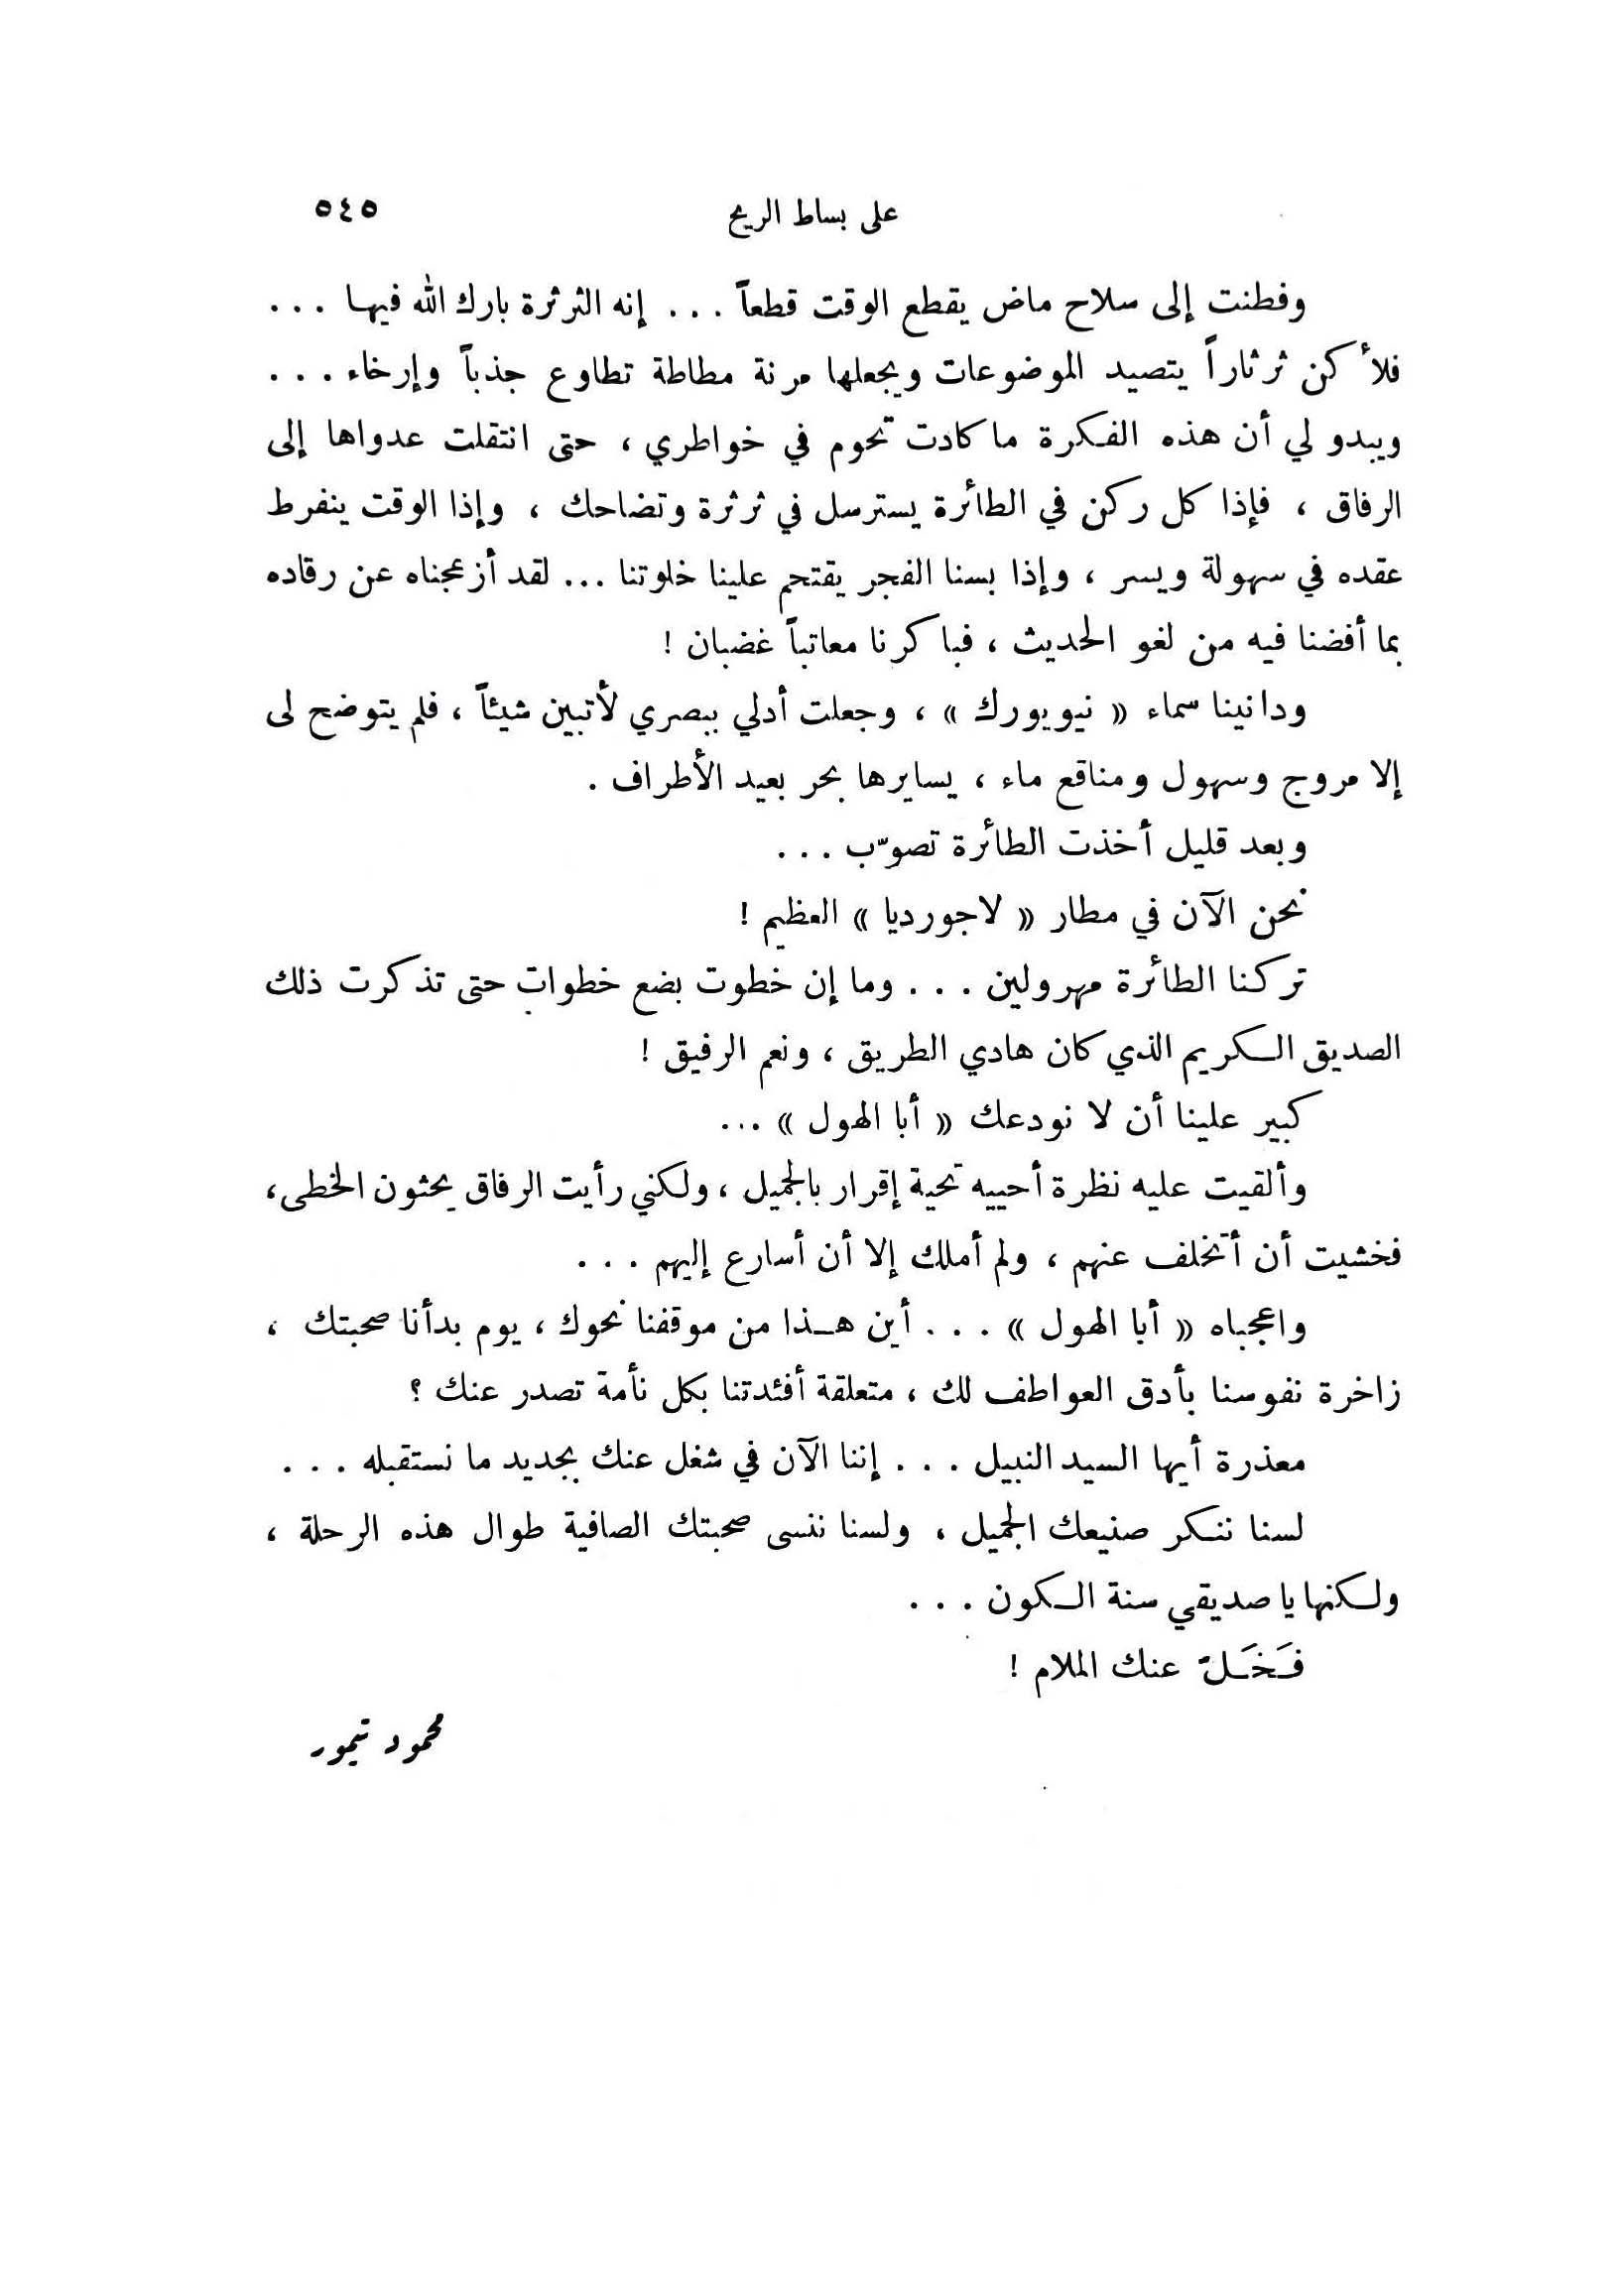 على بساط الريح ٥٤٥
وفطنت إلى سلاح ماض يقطع الوقت قطعاً ... إنه الثرثرة بارك الله فيها ...
فلأكن ثرثاراً يتصيد الموضوعات ويجعلها مرنة مطاطة تطاوع جذباً وإرخاء ...
ويبدو لي أن هذه الفكرة ما كادت تحوم في خواطري ، حتى انتقلت عدواها إلى
الرفاق ، فإذا كل ركن في الطائرة يسترسل في ثرثرة وتضاحك ، وإذا الوقت ينفرط
عقده في سهولة ويسر ، وإذا بسنا الفجر يقتحم علينا خلوتنا ... لقد أزعجناه عن رقاده
بما أفضنا فيه من لغو الحديث ، فباكرنا معاتباً غضبان !
ودانينا سماء « نيويورك » ، وجعلت أدلي ببصري لأتبين شيئاً ، فلم يتوضح لى
إلا مروج وسهول ومناقع ماء ، يسايرها بحر بعيد الأطراف .
وبعد قليل أخذت الطائرة تصوّب ...
نحن الآن في مطار « لاجورديا » العظيم !
تركنا الطائرة مهرولين ... وما إن خطوت بضع خطوات حتى تذكرت ذلك
الصديق الكريم الذي كان هادي الطريق ، ونعم الرفيق !
كبير علينا أن لا نودعك « أبا الهول » ...
وألقيت عليه نظرة أحييه تحية إقرار بالجميل ، ولكني رأيت الرفاق يحثون الخطى ،
فخشيت أن أتخلف عنهم ، ولم أملك إلا أن أسارع إليهم ...
واعجباه « أبا الهول » ... أين هذا من موقفنا نحوك ، يوم بدأنا صحبتك ،
زاخرة نفوسنا بأدق العواطف لك ، متعلقة أفئدتنا بكل نأمة تصدر عنك ؟
معذرة أيها السيد النبيل ... إننا الآن في شغل عنك بجديد ما نستقبله ...
لسنا ننكر صنيعك الجميل ، ولسنا ننسى صحبتك الصافية طوال هذه الرحلة ،
ولكنها يا صديقي سنة الكون ...
فَخَلّ عنك الملام !
محمود تيمور